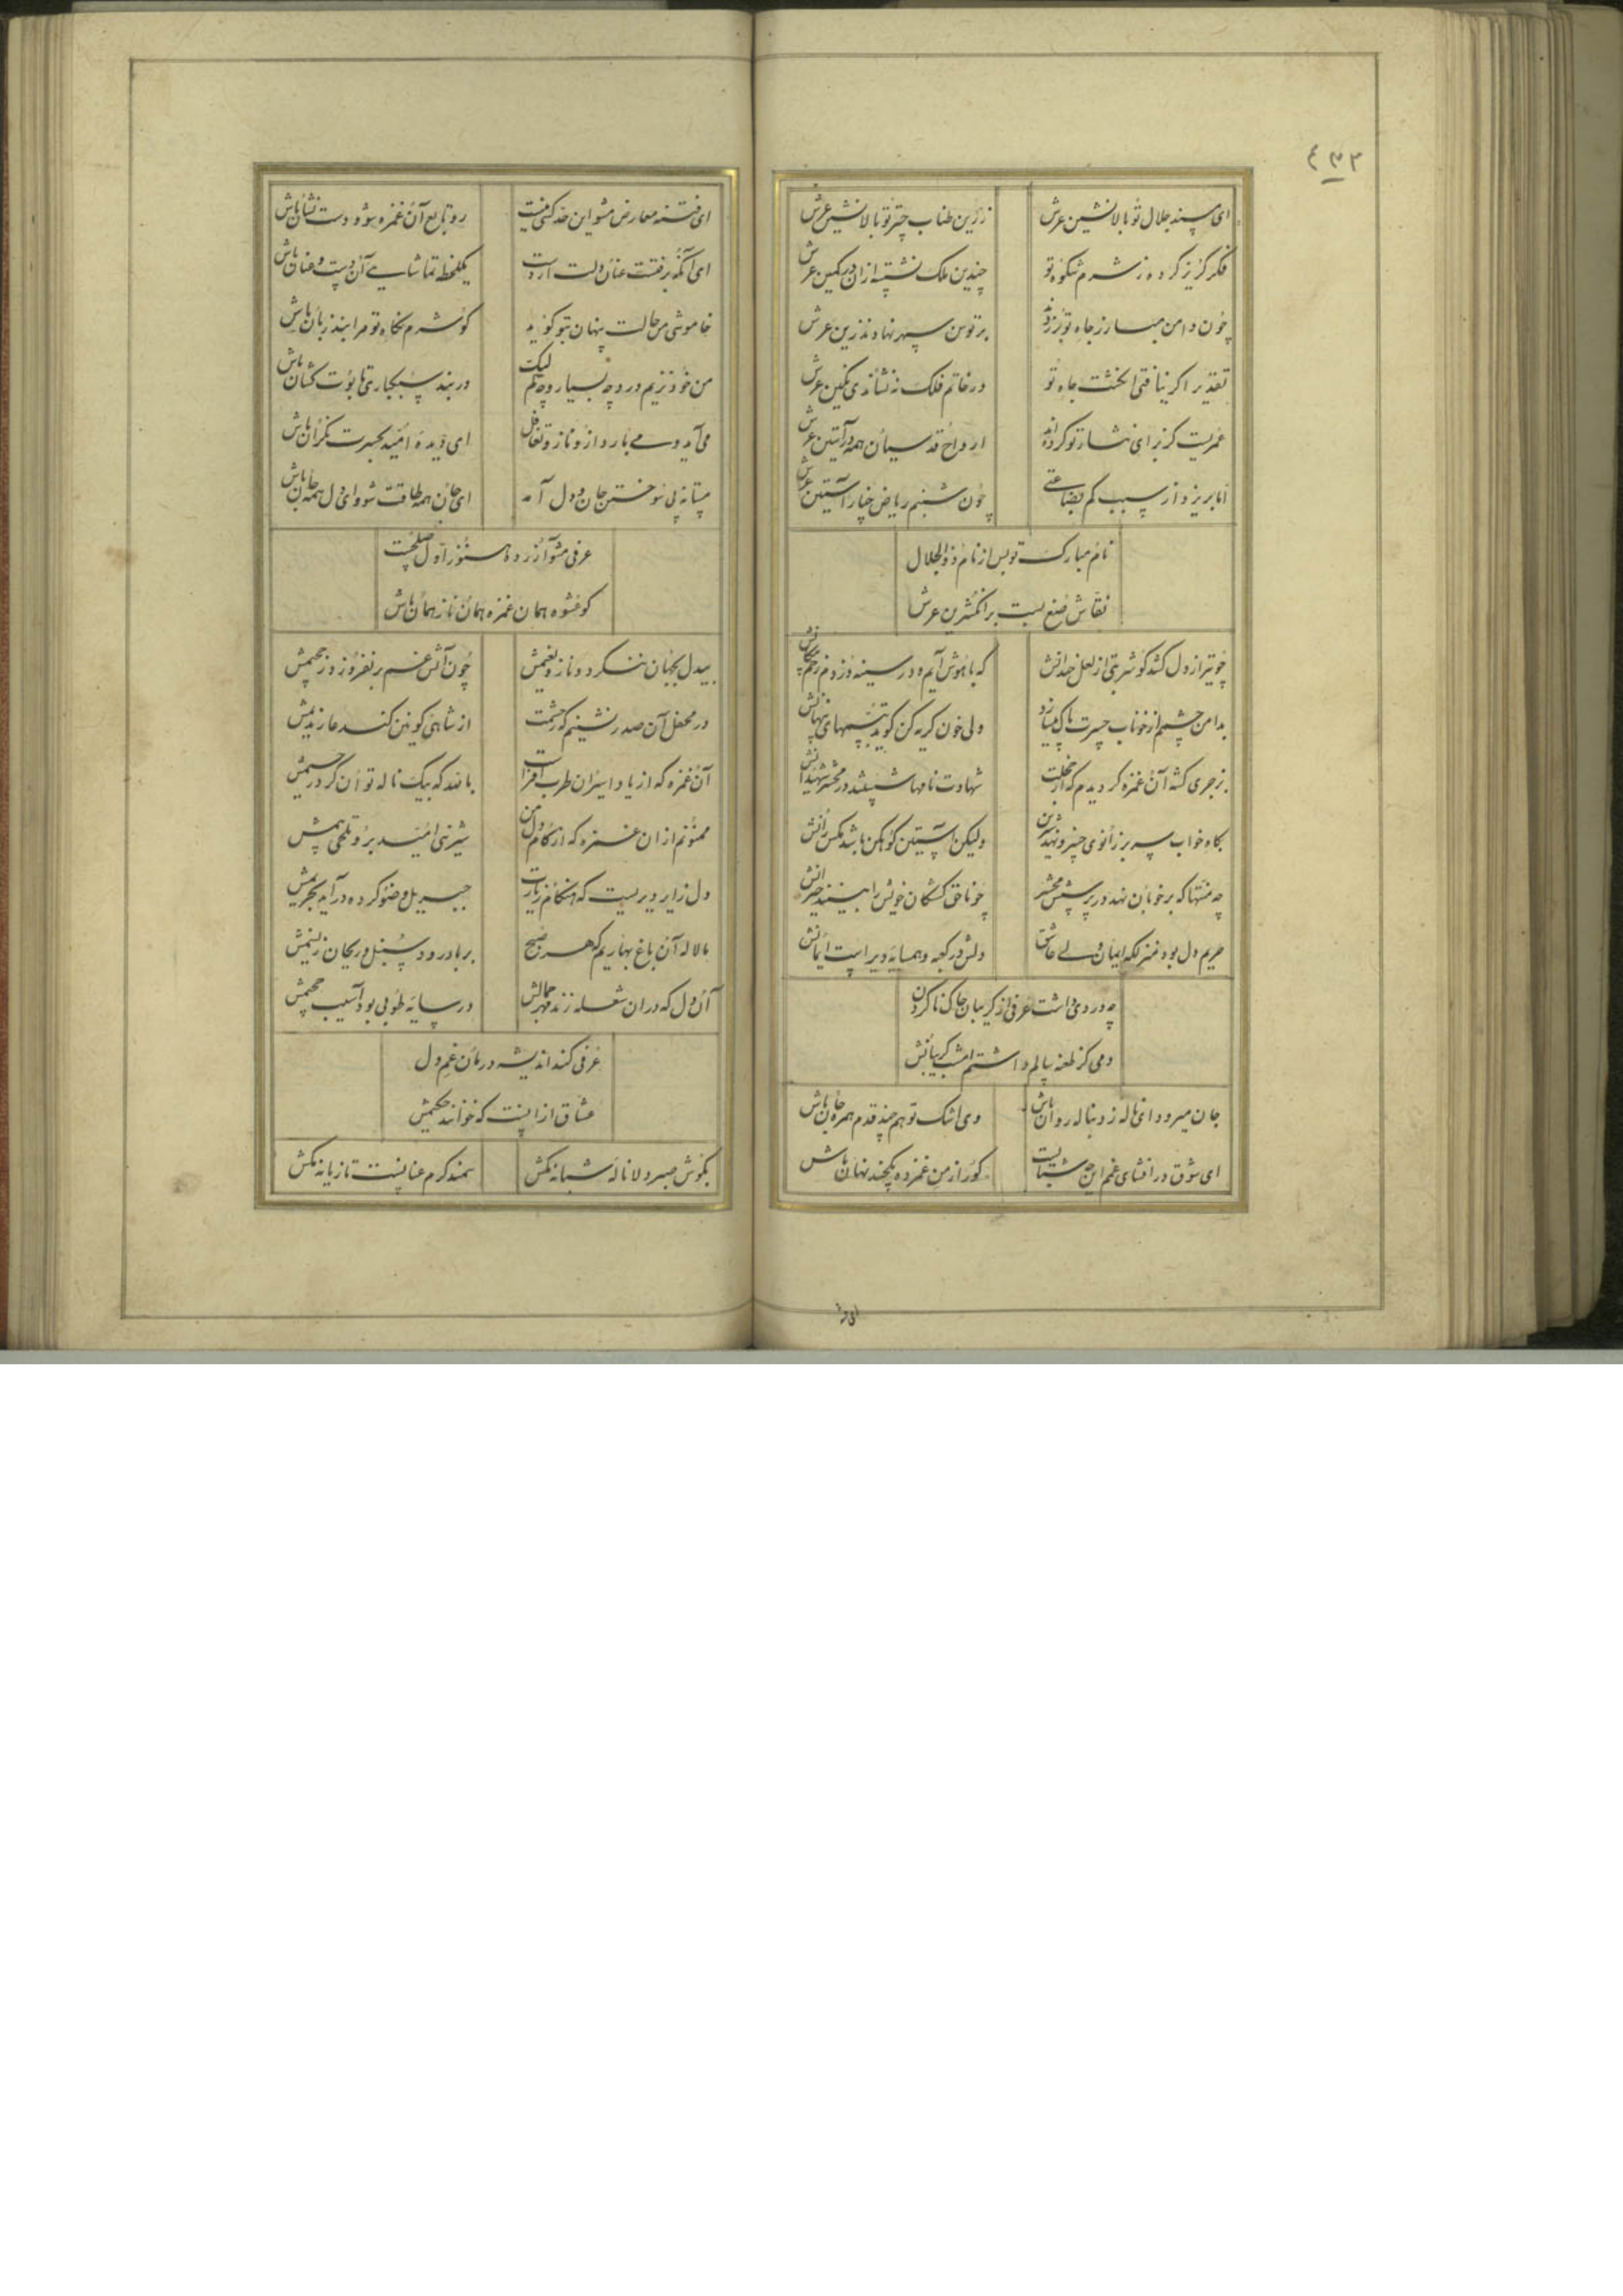 ٤٣٢
ای مسند جلال تو بالانشین عرش
زرین طناب چتر تو بالانشین عرش
فکر گریز کرده ز شرم شکوه تو
چندین ملک نشسته ازان در کمین عرش
چون دامن مبارز جاه تو بر زدند
بر توسن سپهر نهادند زین عرش
تقدیر اگر نیافتی انگشت جاه تو
در خاتم فلک ننشاندی نگین عرش
عمریست کز برای نثار تو کرده‌اند
ارواح قدسیان همه در آستین عرش
اما بریزد از سبب کم بضاعتی
چون شبنم ریاض جنان ز آستین عرش
نام مبارک تو پس از نام ذوالجلال
نقاش صنع بست بر انگشترین عرش
چو تیر از دل کشد کو شربتی از لعل خندانش
که باهوش آیم و در سینه دزدم زخم پیکانش
بدامن چشمم از خوناب حسرت پاک میسازد
ولی خون گریه کن گوید تبسمهای پنهانش
بزجری کشته آن غمزه گردیدم که از خجلت
شهادت نامها شستند در محشر شهیدانش
بگاه خواب سر بر زانوی خسرو نهد شیرین
ولیکن آستین کوهکن باشد مگس رانش
چه منتها که بر خوبان نهد در پرسش محشر
چو ناحق کشتگان خویش را بینند حیرانش
حریم دل بود منزلگه ایمان ولی عاشق
دلش در کعبه و همسایه دیر است ایمانش
چه دردی داشت عرفی از گریبان چاک ناکردن
دمی کز طعنه سالم داشتم امشب گریبانش
جان میرود ای ناله ز دنباله روان باش
وی اشک تو هم چند قدم همره جان باش
ای شوق در افشای غم این چه شتابیست
گو راز من غمزده یکچند نهان باش
ای فتنه
ای فتنه معارض مشو این خدکنی نیست
رو تابع آن غمزه شو و دست نشان باش
ای آنکه برفتست عنان دلت از دست
یکلحظه تماشایی آن دست و عنان باش
خاموشی من حالت پنهان بتو گوید
گو شرم نگاه تو مرا بند زبان باش
من خود زیم درد و چه بسیار و چه کم لیک
در بند سبکباری تابوت کشان باش
می‌آید و می بارد ازو ناز و تغافل
ای دیده امید بحسرت نگران باش
مستانه پی سوختن جان و دل آمد
ای جان همه طاقت شو و ای دل همه جان باش
عرفی مشو آزرده هنوز اول صلحست
گو عشوه همان غمزه همان ناز همان باش
بیدل بجنان ننگرد و ناز و نعیمش
چون آتش غم برنفروزد ز جحیمش
در محفل آن صدر نشینم که ز حشمت
از شاهی کونین کند عار ندیمش
آن غمزه که از یاد اسیران طرب افزاست
بالله که بیک ناله توان کرد رحیمش
ممنونم از ان غمزه که از کام دل من
شیرینی امید برد تلخی بیمش
دل زایر دیریست که هنگام زیارت
جبریل وضو کرده درآید بحریمش
ما لاله آن باغ بهاریم که هر صبح
بر باد رود سنبل و ریحان ز نسیمش
آن دل که دران شعله زند مهر جمالش
در سایه طوبی بود آسیب جحیمش
عرفی کند اندیشه درمان غم دل
عشاق ازاینست که خوانند حکیمش
بگوش صبر دلا ناله شبانه مکش
سمند گرم عنانست تازیانه مکش